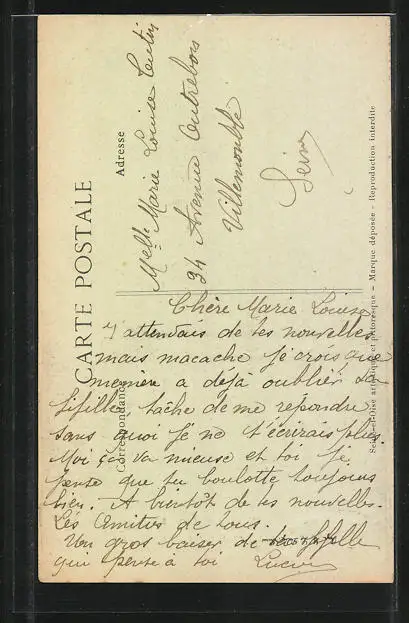 CARTE POSTALE
Correspondance
Adresse
Melle Marie Louise
34 Avenue Outrebon
Villemomble
Seine
Seine-et-Oise artistique et pittoresque - Marque déposée - Reproduction interdite
Chère Marie Louise
J'attendais de tes nouvelles
mais macache je crois que
mémère a déjà oublier sa
fifille, tâche de me répondre
sans quoi je ne t'écrirais plus.
Moi ça va mieuse et toi je
pense que tu boulotte toujours
bien. A bientôt de tes nouvelles.
Les Amitiés de tous.
Un gros baiser de fifille
qui pense à toi